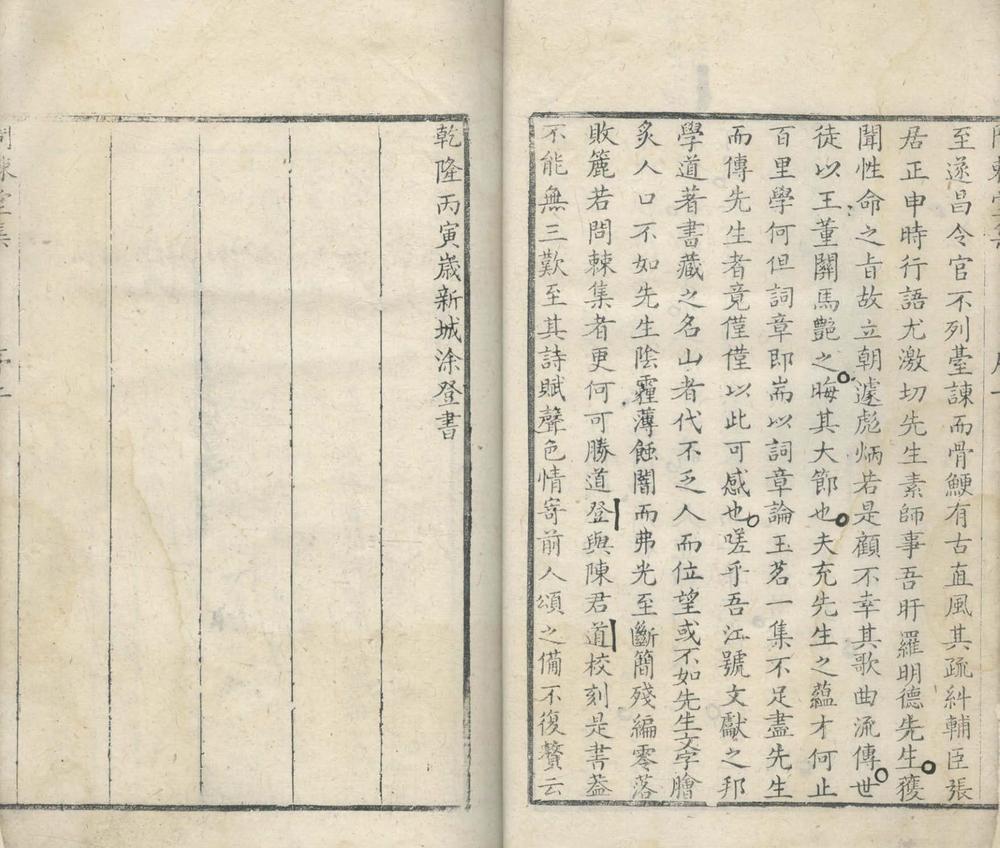 至遂昌令官不列臺諫而骨鯁有古直風其疏糾輔臣張
居正申時行語尤激切先生素師事吾盱羅明德先生獲
聞性命之旨故立朝遽彪炳若是顧不幸其歌曲流傳世
徒以王董關馬艷之晦其大節也夫充先生之蘊才何止
百里學何但詞章即耑以詞章論玉茗一集不足盡先生
而傳先生者竟僅僅以此可感也嗟乎吾江號文獻之邦
學道著書藏之名山者代不乏人而位望或不如先生文字膾
炙人口不如先生陰霾薄蝕闇而弗光至斷簡殘編零落
敗簏若問棘集者更何可勝道登與陳君道校刻是書葢
不能無三歎至其詩賦聲色情寄前人頌之備不復贅云
乾隆丙寅歲新城涂登書
問棘堂集